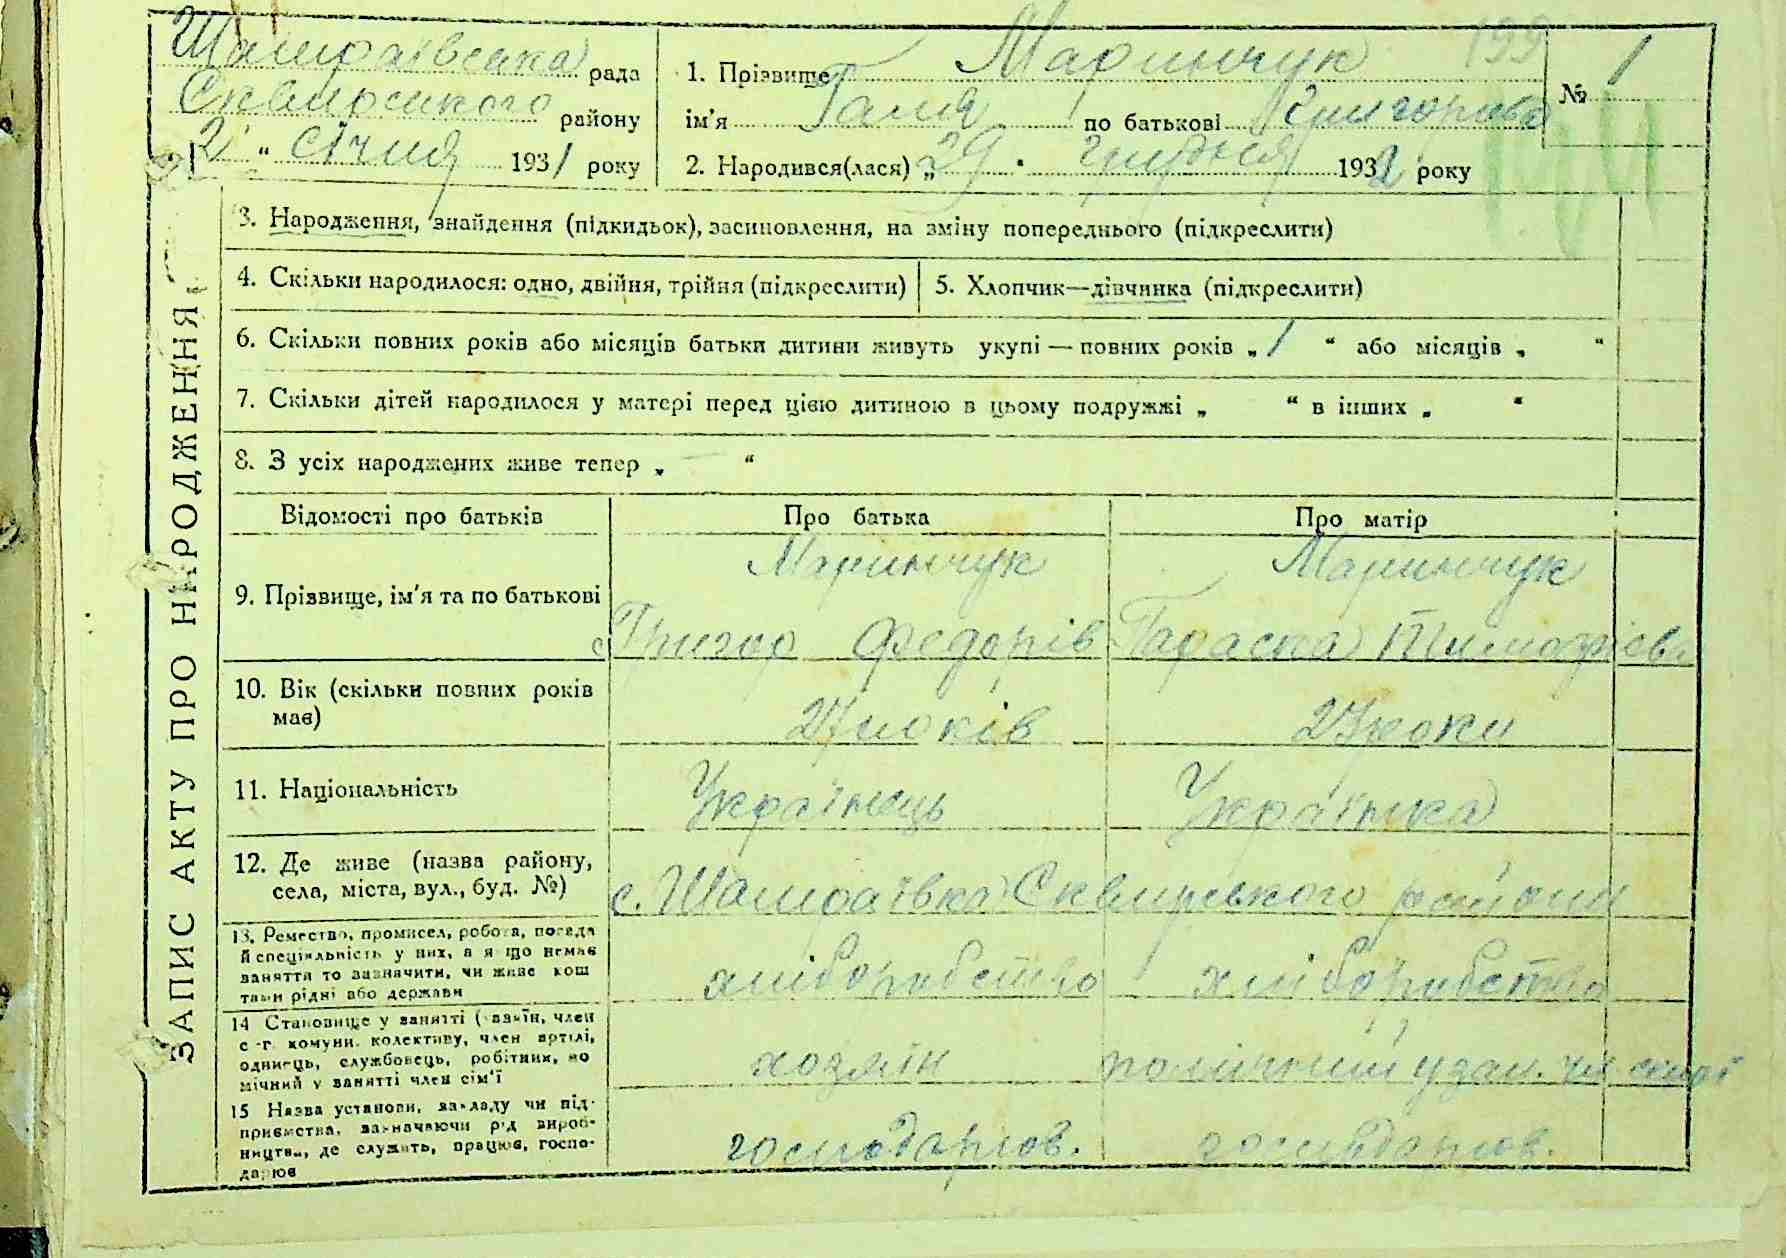 Шамраївська рада
Сквирського району
"2" січня 1931 року
199
1. Прізвище Маринчук
ім'я Галя по батькові Григорова
№ 1
2. Народився(лася) „29" грудня 193 року
ЗАПИС АКТУ ПРО НАРОДЖЕННЯ
3. Народження, знайдення (підкидьок), засиновлення, на зміну попереднього (підкреслити)
4. Скільки народилося: одно, двійня, трійня (підкреслити)
5. Хлопчик—дівчинка (підкреслити)
6. Скільки повних років або місяців батьки дитини живуть укупі — повних років „1" або місяців „ "
7. Скільки дітей народилося у матері перед цією дитиною в цьому подружжі „ " в інших „ "
8. З усіх народжених живе тепер „ "
Відомості про батьків
Про батька
Про матір
9. Прізвище, ім'я та по батькові
Маринчук
Григор Федорів
Маринчук
Параска Тимофієв.
10. Вік (скільки повних років
має)
27 років
23 роки
11. Національність
Українець
Українка
12. Де живе (назва району,
села, міста, вул., буд. №)
с. Шамраївка Сквирського району
13. Ремество, промисел, робота, посада
й спеціяльність у них, а якщо немає
заняття то зазначити, чи живе кош
тами рідні або держави
хліборобство
хліборобство
14 Становище у занятті (хазяїн, член
с.-г. комуни, колективу, член артілі,
одинець, службовець, робітник, по
мічний у занятті член сім'ї
хозяїн
помічний у зан. чл. сімї
15 Назва установи, закладу чи під-
приємства, зазначаючи рід вироб-
ництва, де служить, працює, госпо-
дарює
господарюв.
господарюв.